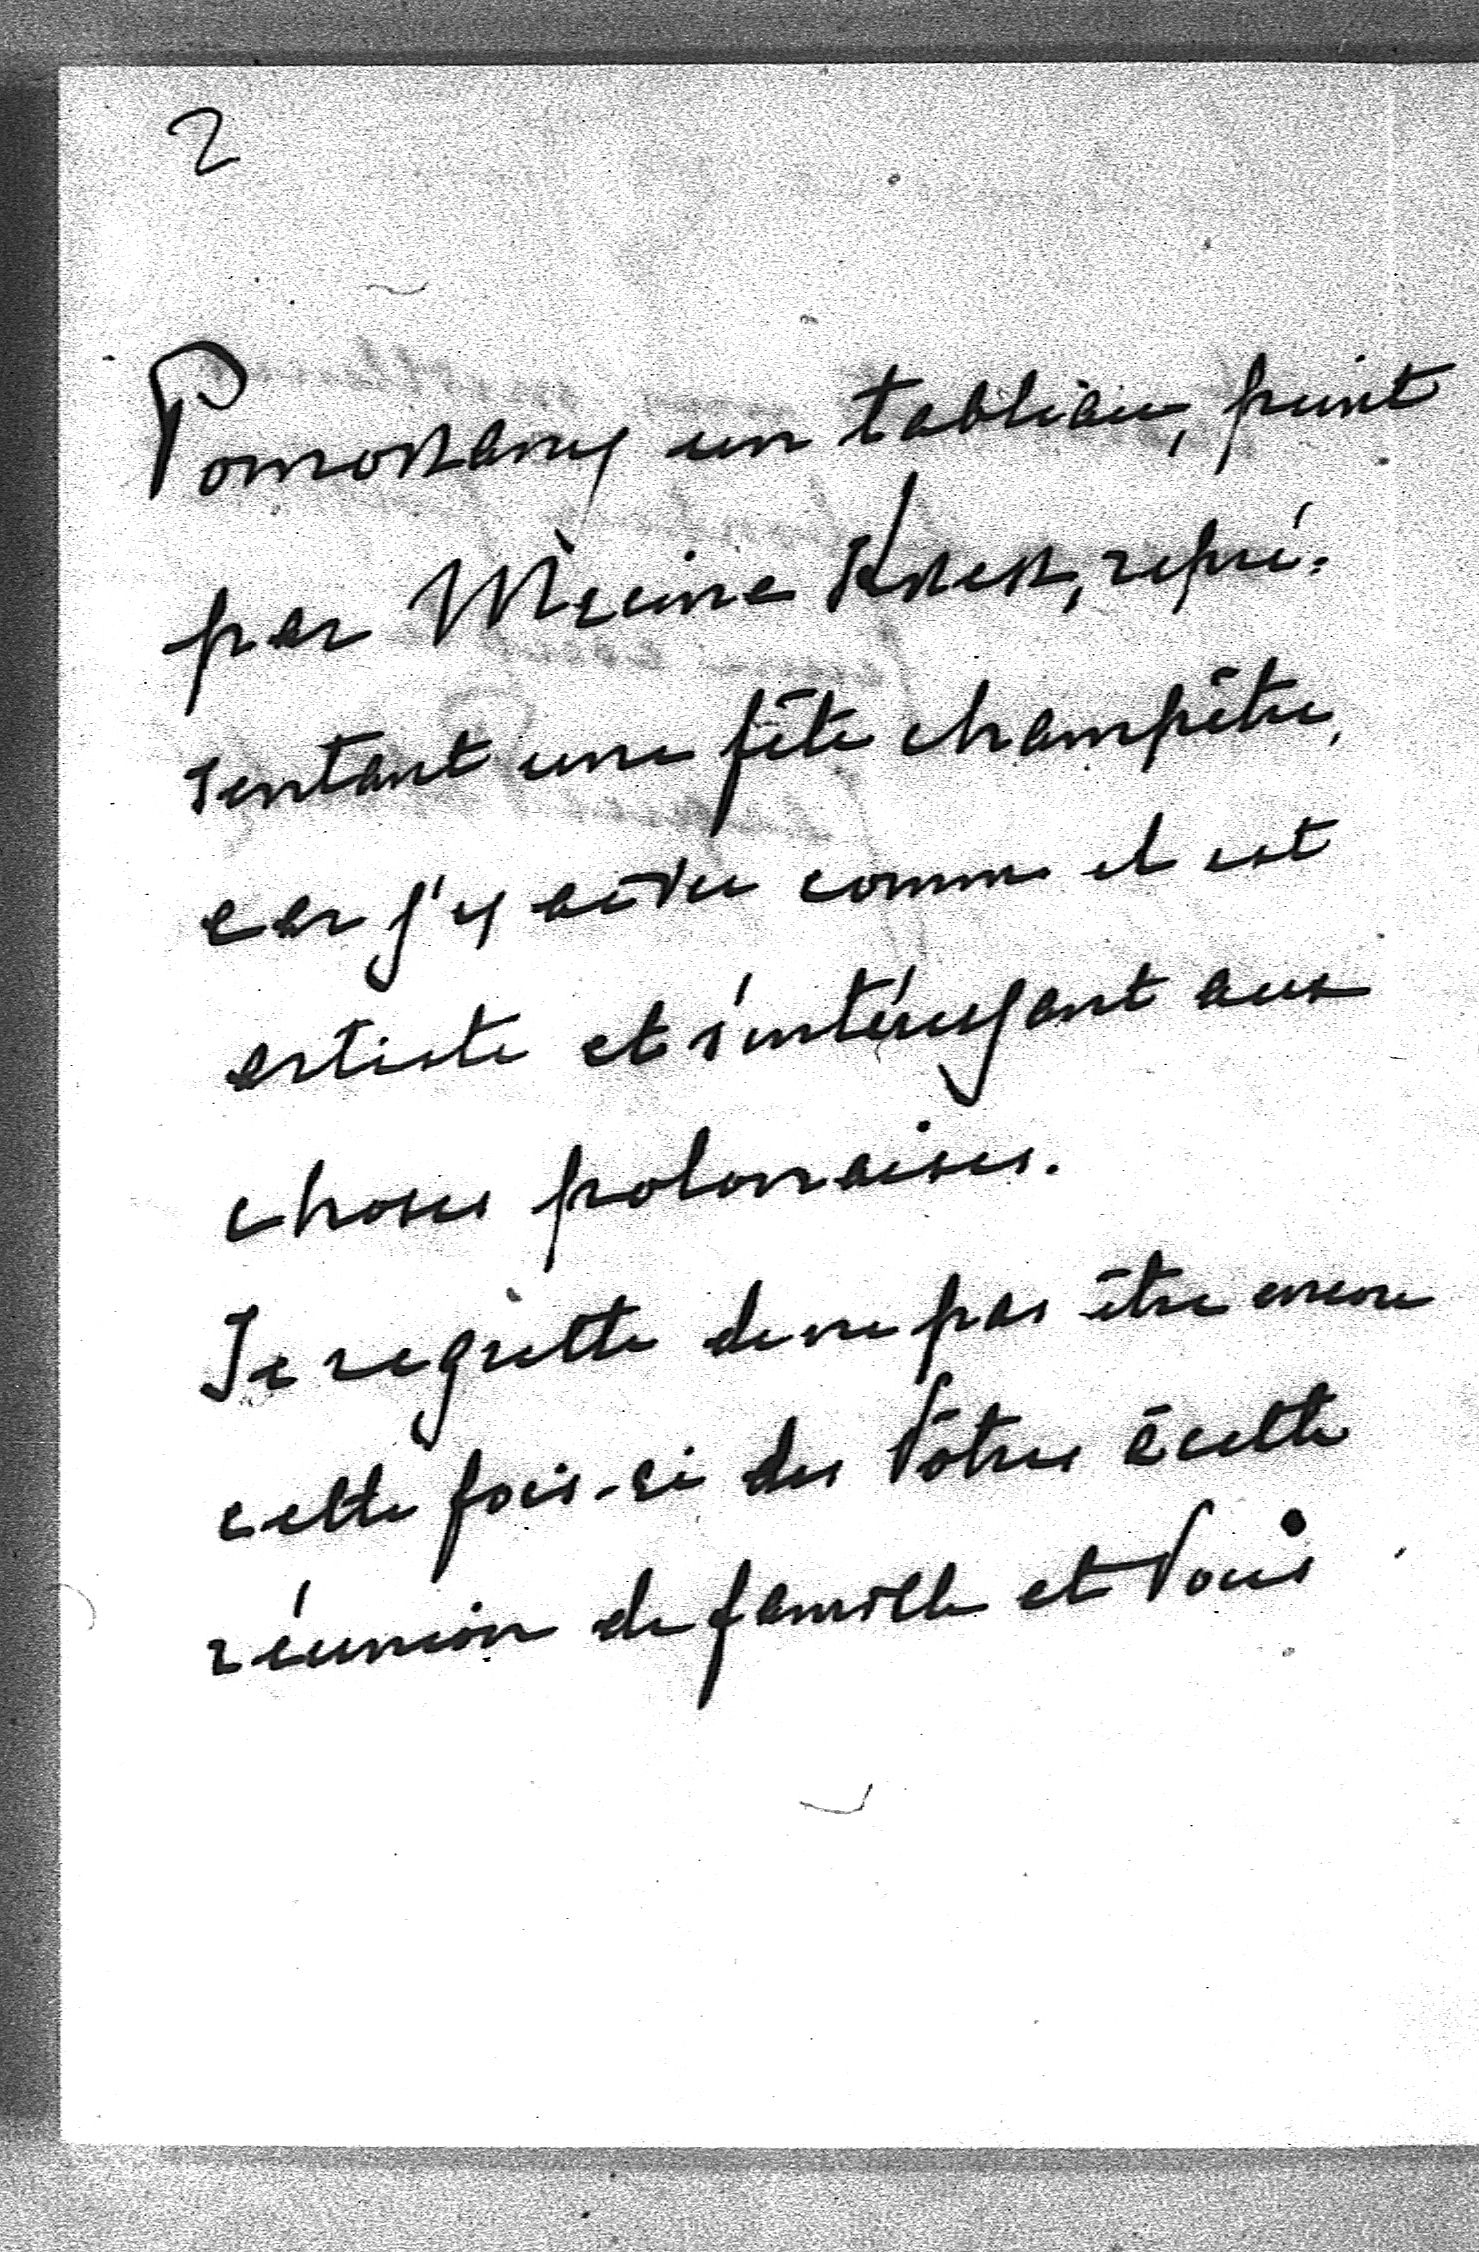 2
Pomorzany un tableau, peint
par Mecina Krzesz, repré-
sentant une fête champêtre,
car j'y ai vu comme il est
artiste et s'intéressant aux
choses polonaises.
Je regrette de ne pas être encore
cette fois-ci des Vôtres à cette
réunion de famille et Vous